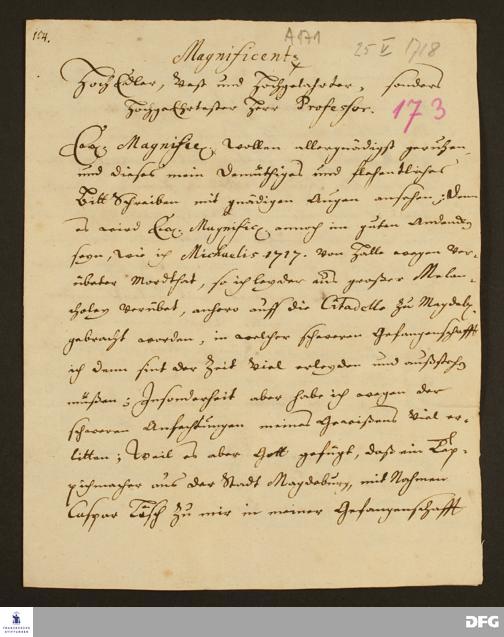 154.
A171
25 V 1718
Magnificentz
HochEdler, Vest und Hochgelahrter, sonders
HochgeEhrtester Herr Professor.
173
Ew. Magnific. wollen allergnädigst geruhen,
und dieses mein Demüthiges und flehentliches
Bitt Schreiben mit gnädigen Augen ansehen; Denn
es wird Ew. Magnific. annoch in guten Andencken
seyn, wie ich Michaelis 1717. von Halle wegen ver-
übeter Mordthat, so ich leyder aus großer Melan-
choley verübet, anhero auff die Citadelle zu Magdeb.
gebracht worden, in welcher schweren Gefangenschafft
ich denn sint der Zeit viel erleyden und außstehen
müßen; Insonderheit aber habe ich wegen der
schweren Anfechtungen meines Gewißens viel er-
litten; Weil es aber Gott gefügt, daß ein Tep-
pichmacher aus der Stadt Magdeburg, mit Nahmen
Caspar Tösch zu mir in meiner Gefangenschafft
FRANCKESCHE STIFTUNGEN
DFG